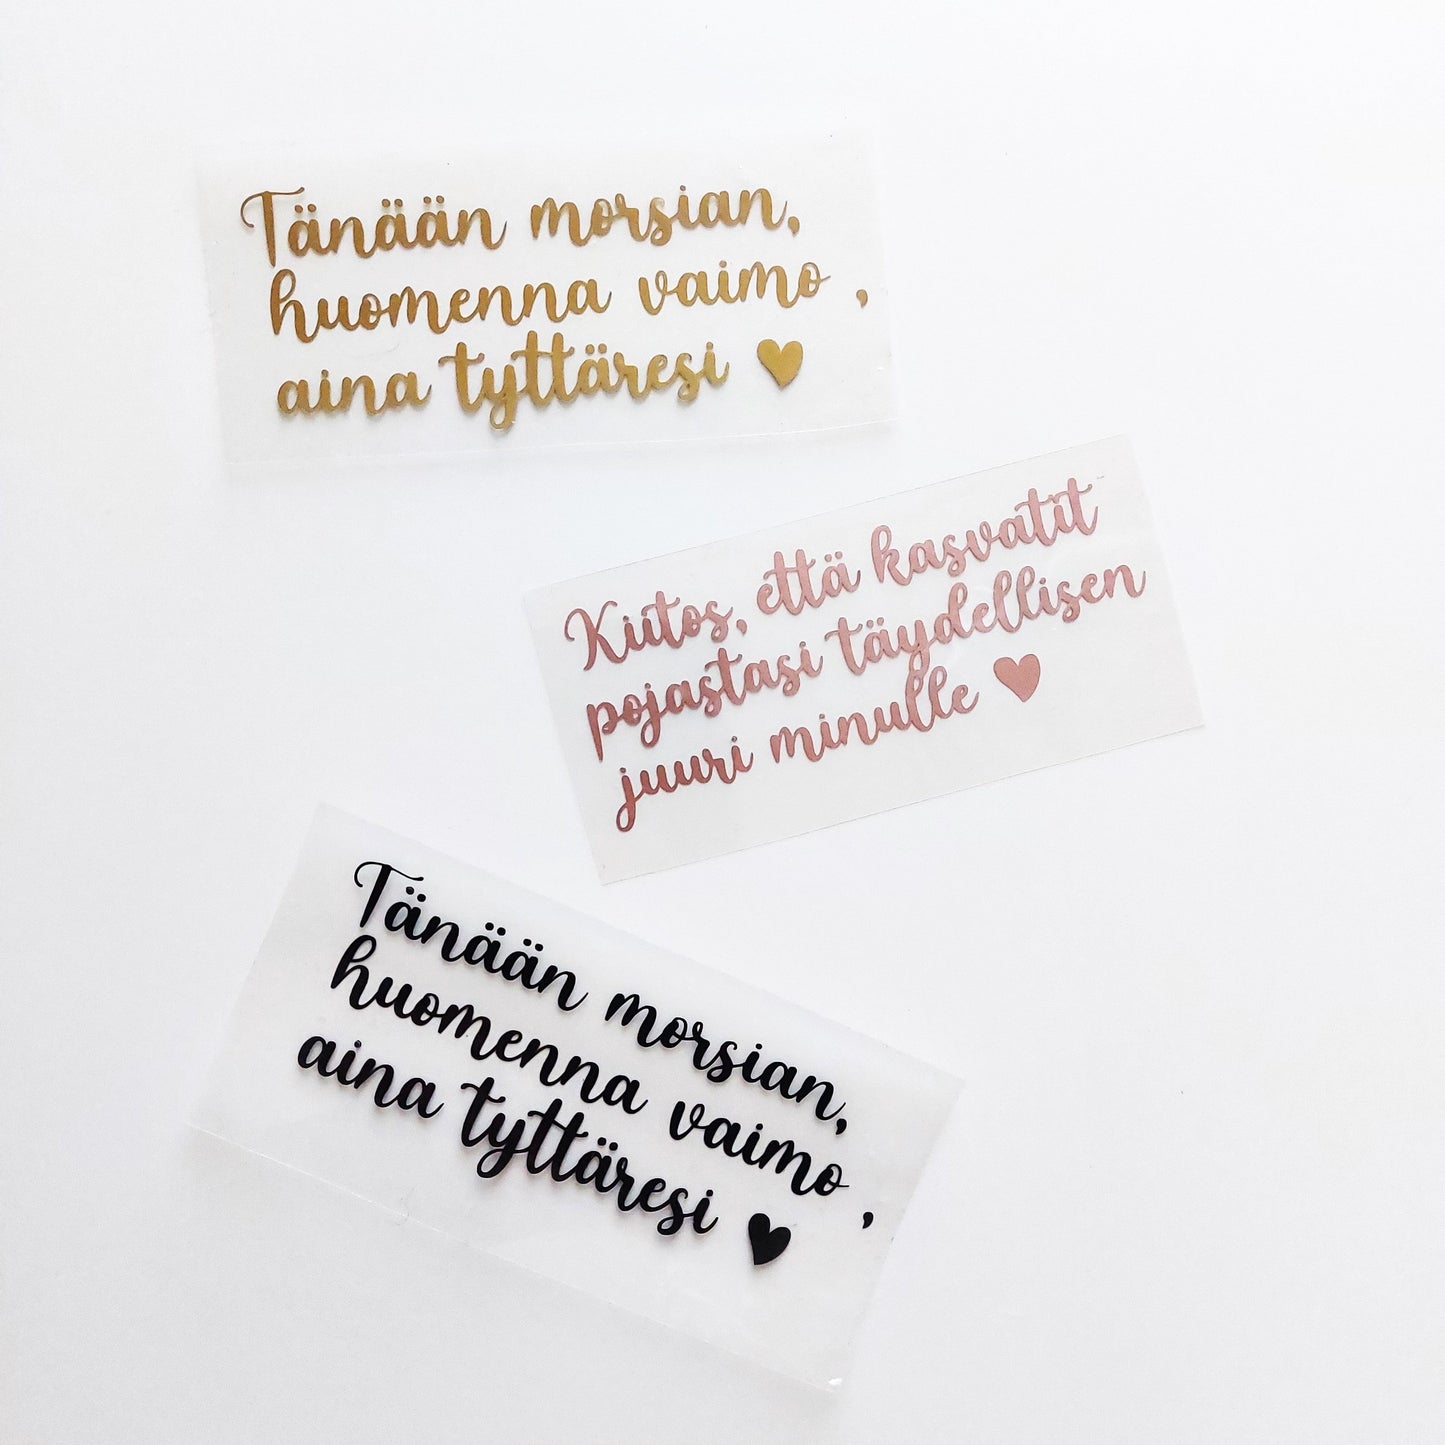 Tänään morsian,
huomenna vaimo ,
aina tyttäresi ♥
Kiitos, että kasvatit
pojastasi täydellisen
juuri minulle ♥
Tänään morsian,
huomenna vaimo ,
aina tyttäresi ♥